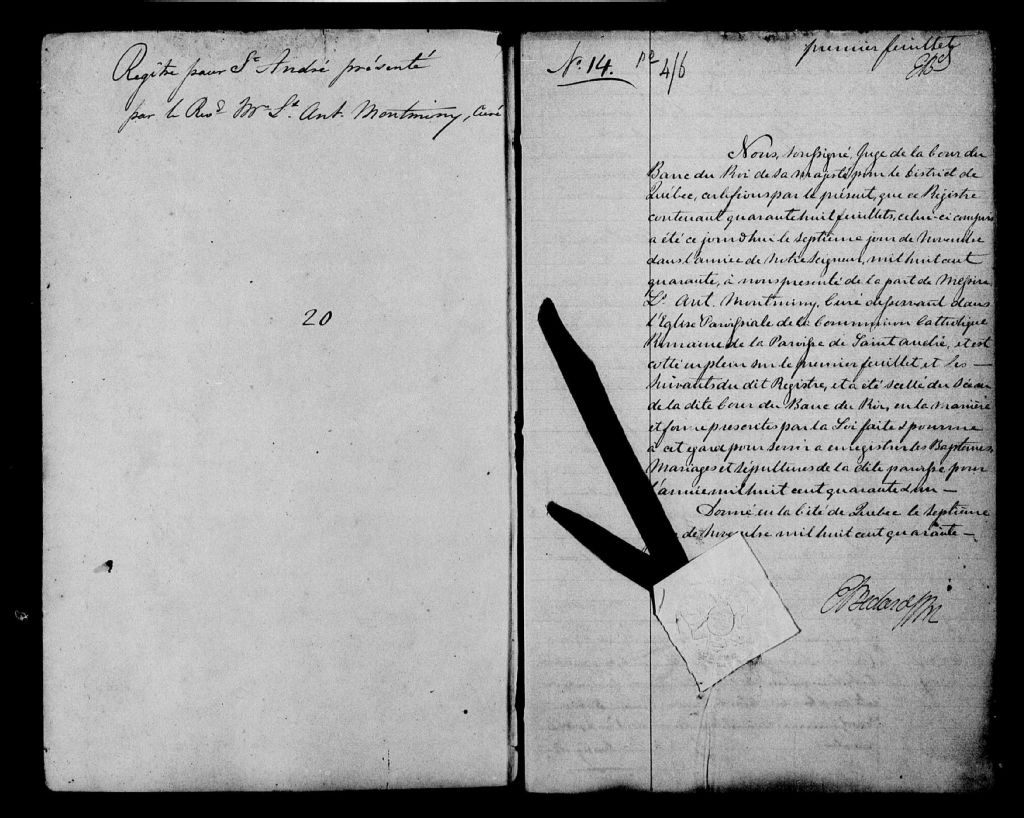 Regître pour St André présenté
par le Revd Mre Ls Ant. Montminy, Curé
20
No. 14. Pd 4/6
premier feuillet
EBd
Nous, soussigné, Juge de la Cour du
Banc du Roi de sa majesté pour le District de
Québec, certifions par le présent, que ce Régistre
contenant quarante huit feuillets, celui-ci compris
a été ce jourdhui le septième jour de Novembre
dans l'année de Notre Seigneur, mil huit cent
quarante, à nous présenté de la part de Messire
Ls Ant. Montminy, Curé desservant dans
l'Eglise Paroissiale de la Communion Catholique
Romaine de la Paroisse de Saint André, et est
cotté en plein sur le premier feuillet, et les
suivants du dit Régistre, et a été scellé du Sceau
de la dite Cour du Banc du Roi, en la manière
et forme prescrites par la Loi faite & pourvue
à cet égard pour servir a enregistrer les Baptêmes,
Mariages et Sépultures de la dite paroisse pour
l'année mil huit cent quarante & un —
Donné en la Cité de Québec le septième
de Novembre mil huit cent quarante —
E Bedard